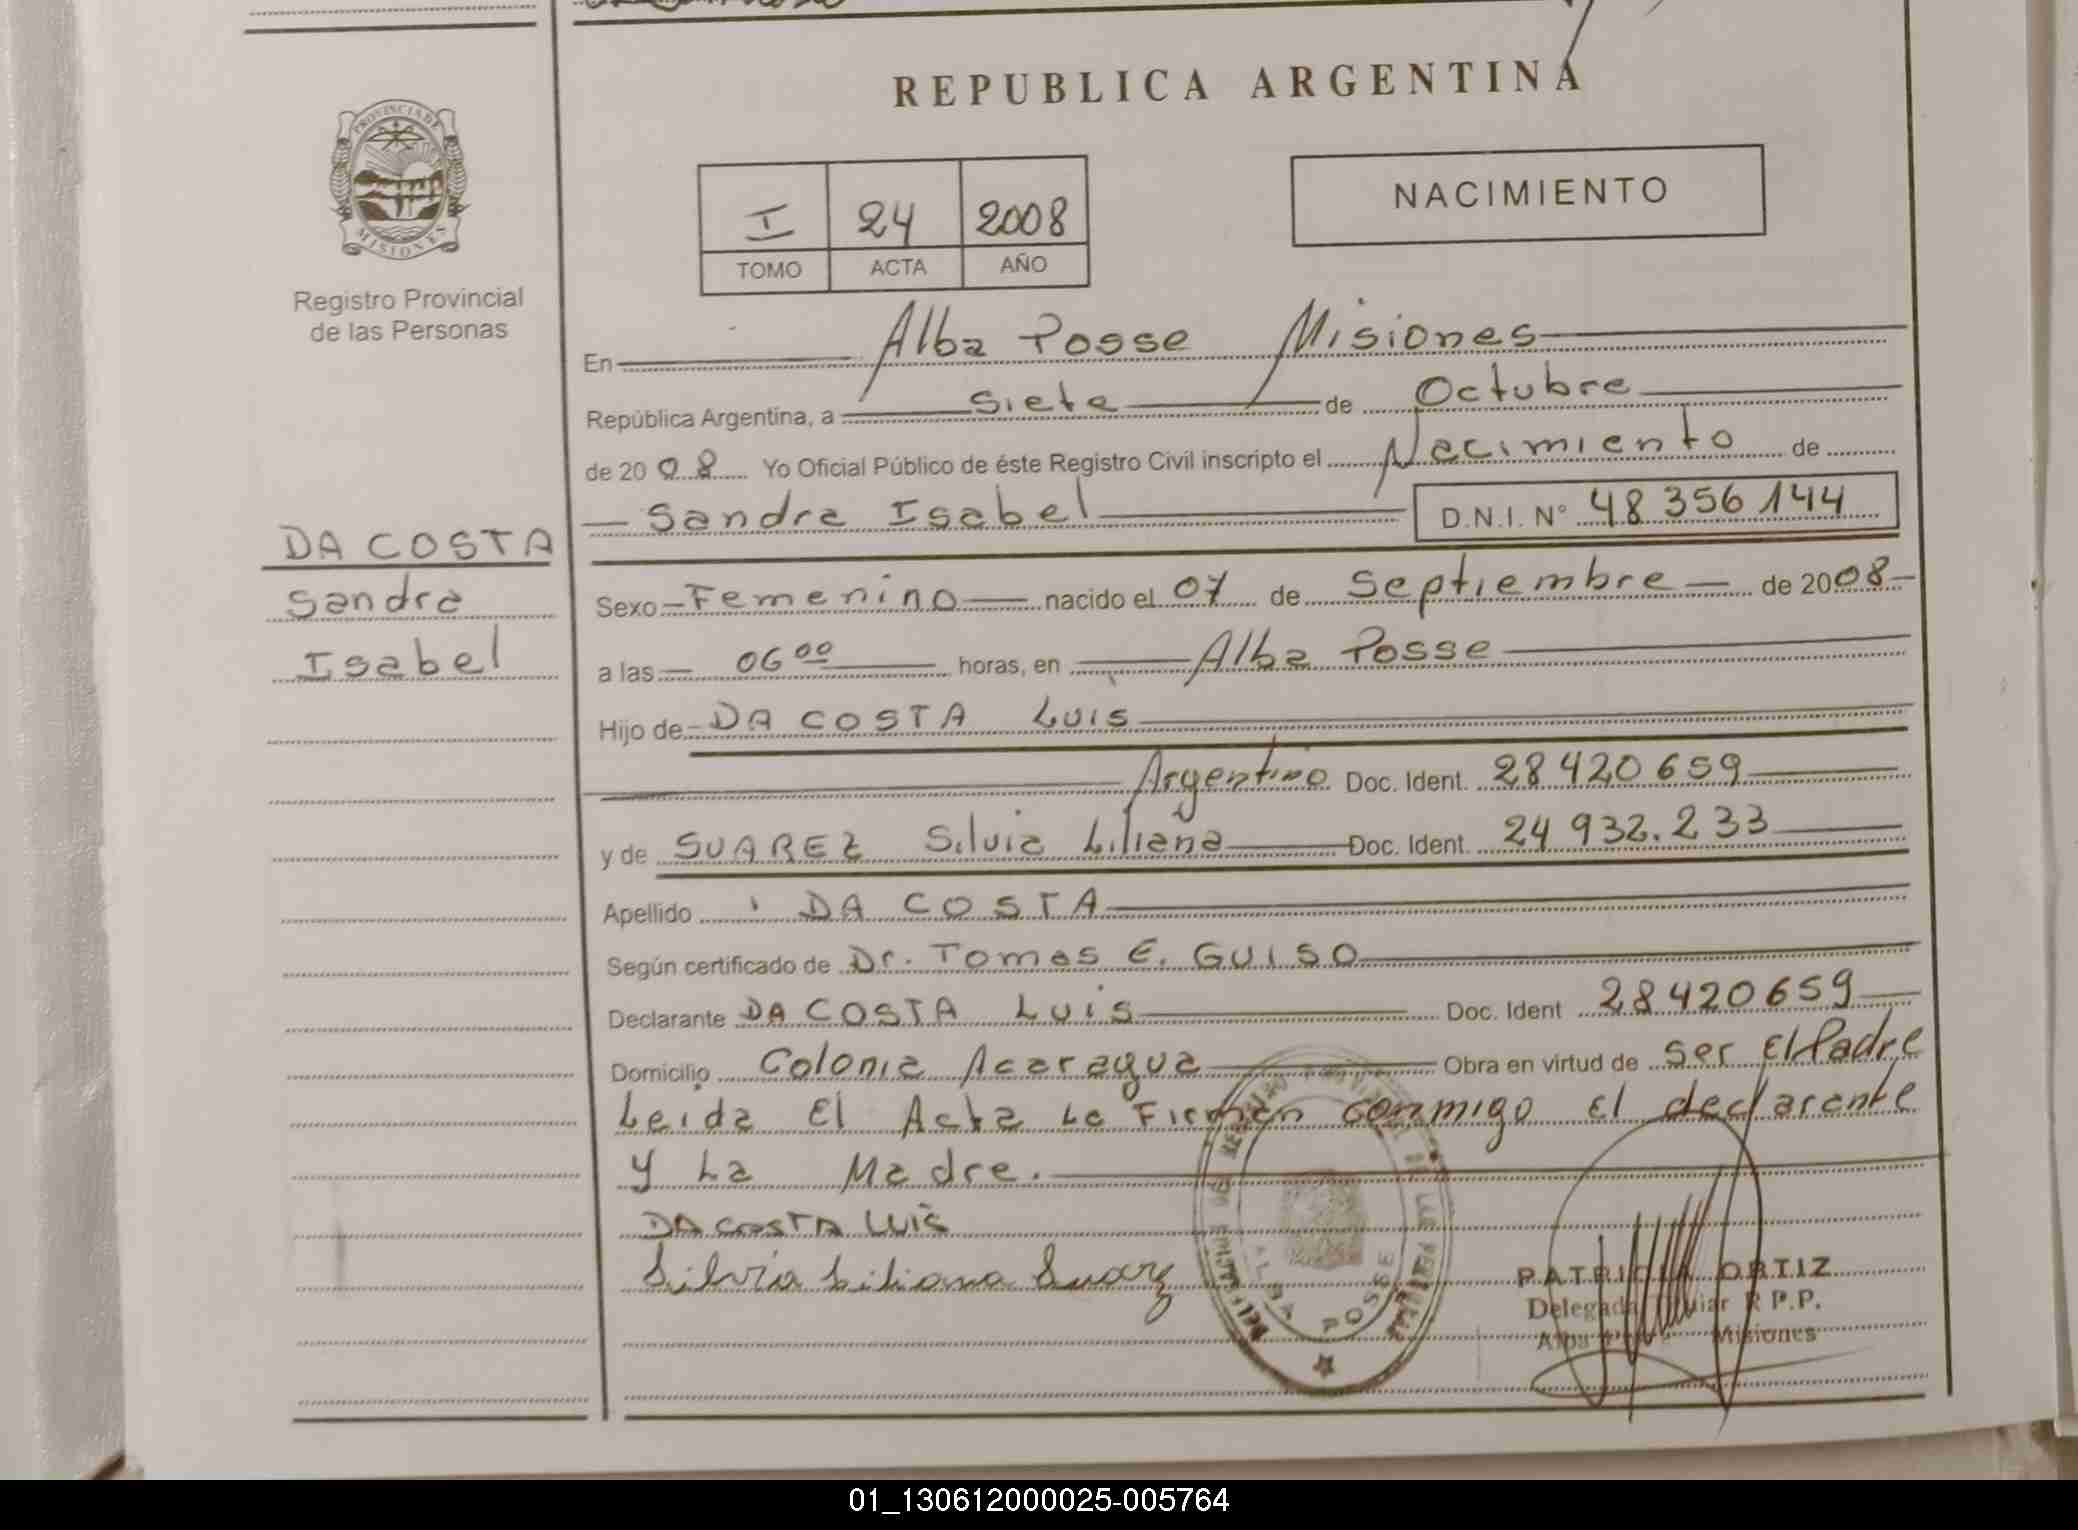 REPUBLICA ARGENTINA
PROVINCIA DE
MISIONES
Registro Provincial
de las Personas
I 24 2008
TOMO ACTA AÑO
NACIMIENTO
En Alba Posse Misiones
República Argentina, a siete de Octubre
de 2008 Yo Oficial Público de éste Registro Civil inscripto el Nacimiento de
Sandra Isabel D.N.I. N° 48 356 144
DA COSTA
Sandra
Isabel
Sexo Femenino nacido el 07 de Septiembre de 2008
a las 06 00 horas, en Alba Posse
Hijo de DA COSTA Luis
Argentino Doc. Ident. 28 420 659
y de SUAREZ Silvia Liliana Doc. Ident. 24 932.233
Apellido DA COSTA
Según certificado de Dr. Tomas E. GUISO
Declarante DA COSTA Luis Doc. Ident 28420659
Domicilio Colonia Acaragua Obra en virtud de ser El Padre
Leida El Acta La Firman conmigo el declarante
y La Madre.
DA COSTA LUIS
Silvia Liliana Suarez
ALBA POSSE
PATRICIA ORTIZ
Delegada Titular R P.P.
Alba Posse Misiones
01_130612000025-005764